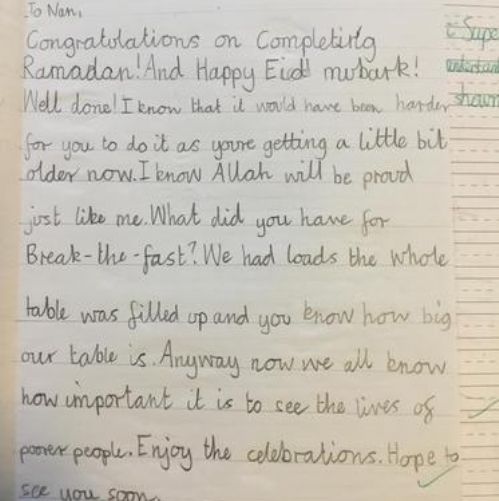 To Nani
Congratulations on Completing
Ramadan! And Happy Eid mubark!
Well done! I know that it would have been harder
for you to do it as youre getting a little bit
older now. I know Allah will be proud
just like me. What did you have for
Break-the-fast? We had loads the whole
table was filled up and you know how big
our table is. Anyway now we all know
how important it is to see the lives of
poorer people. Enjoy the celebrations. Hope to
see you soon.